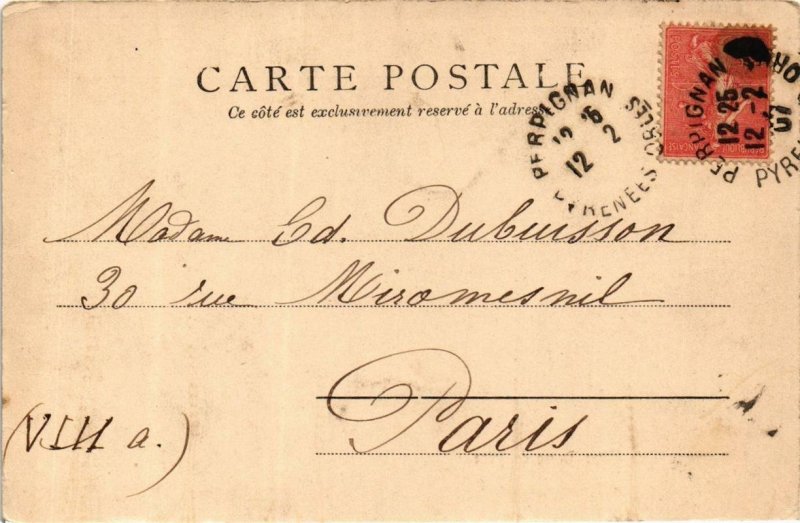 CARTE POSTALE
Ce côté est exclusivement reservé à l'adresse
PERPIGNAN
12
12 2
PYRENEES ORLES
PERPIGNAN
12 25
12 -2
07
PYRE
Madame Ed. Dubuisson
30 rue Miromesnil
Paris
(VIII a.)